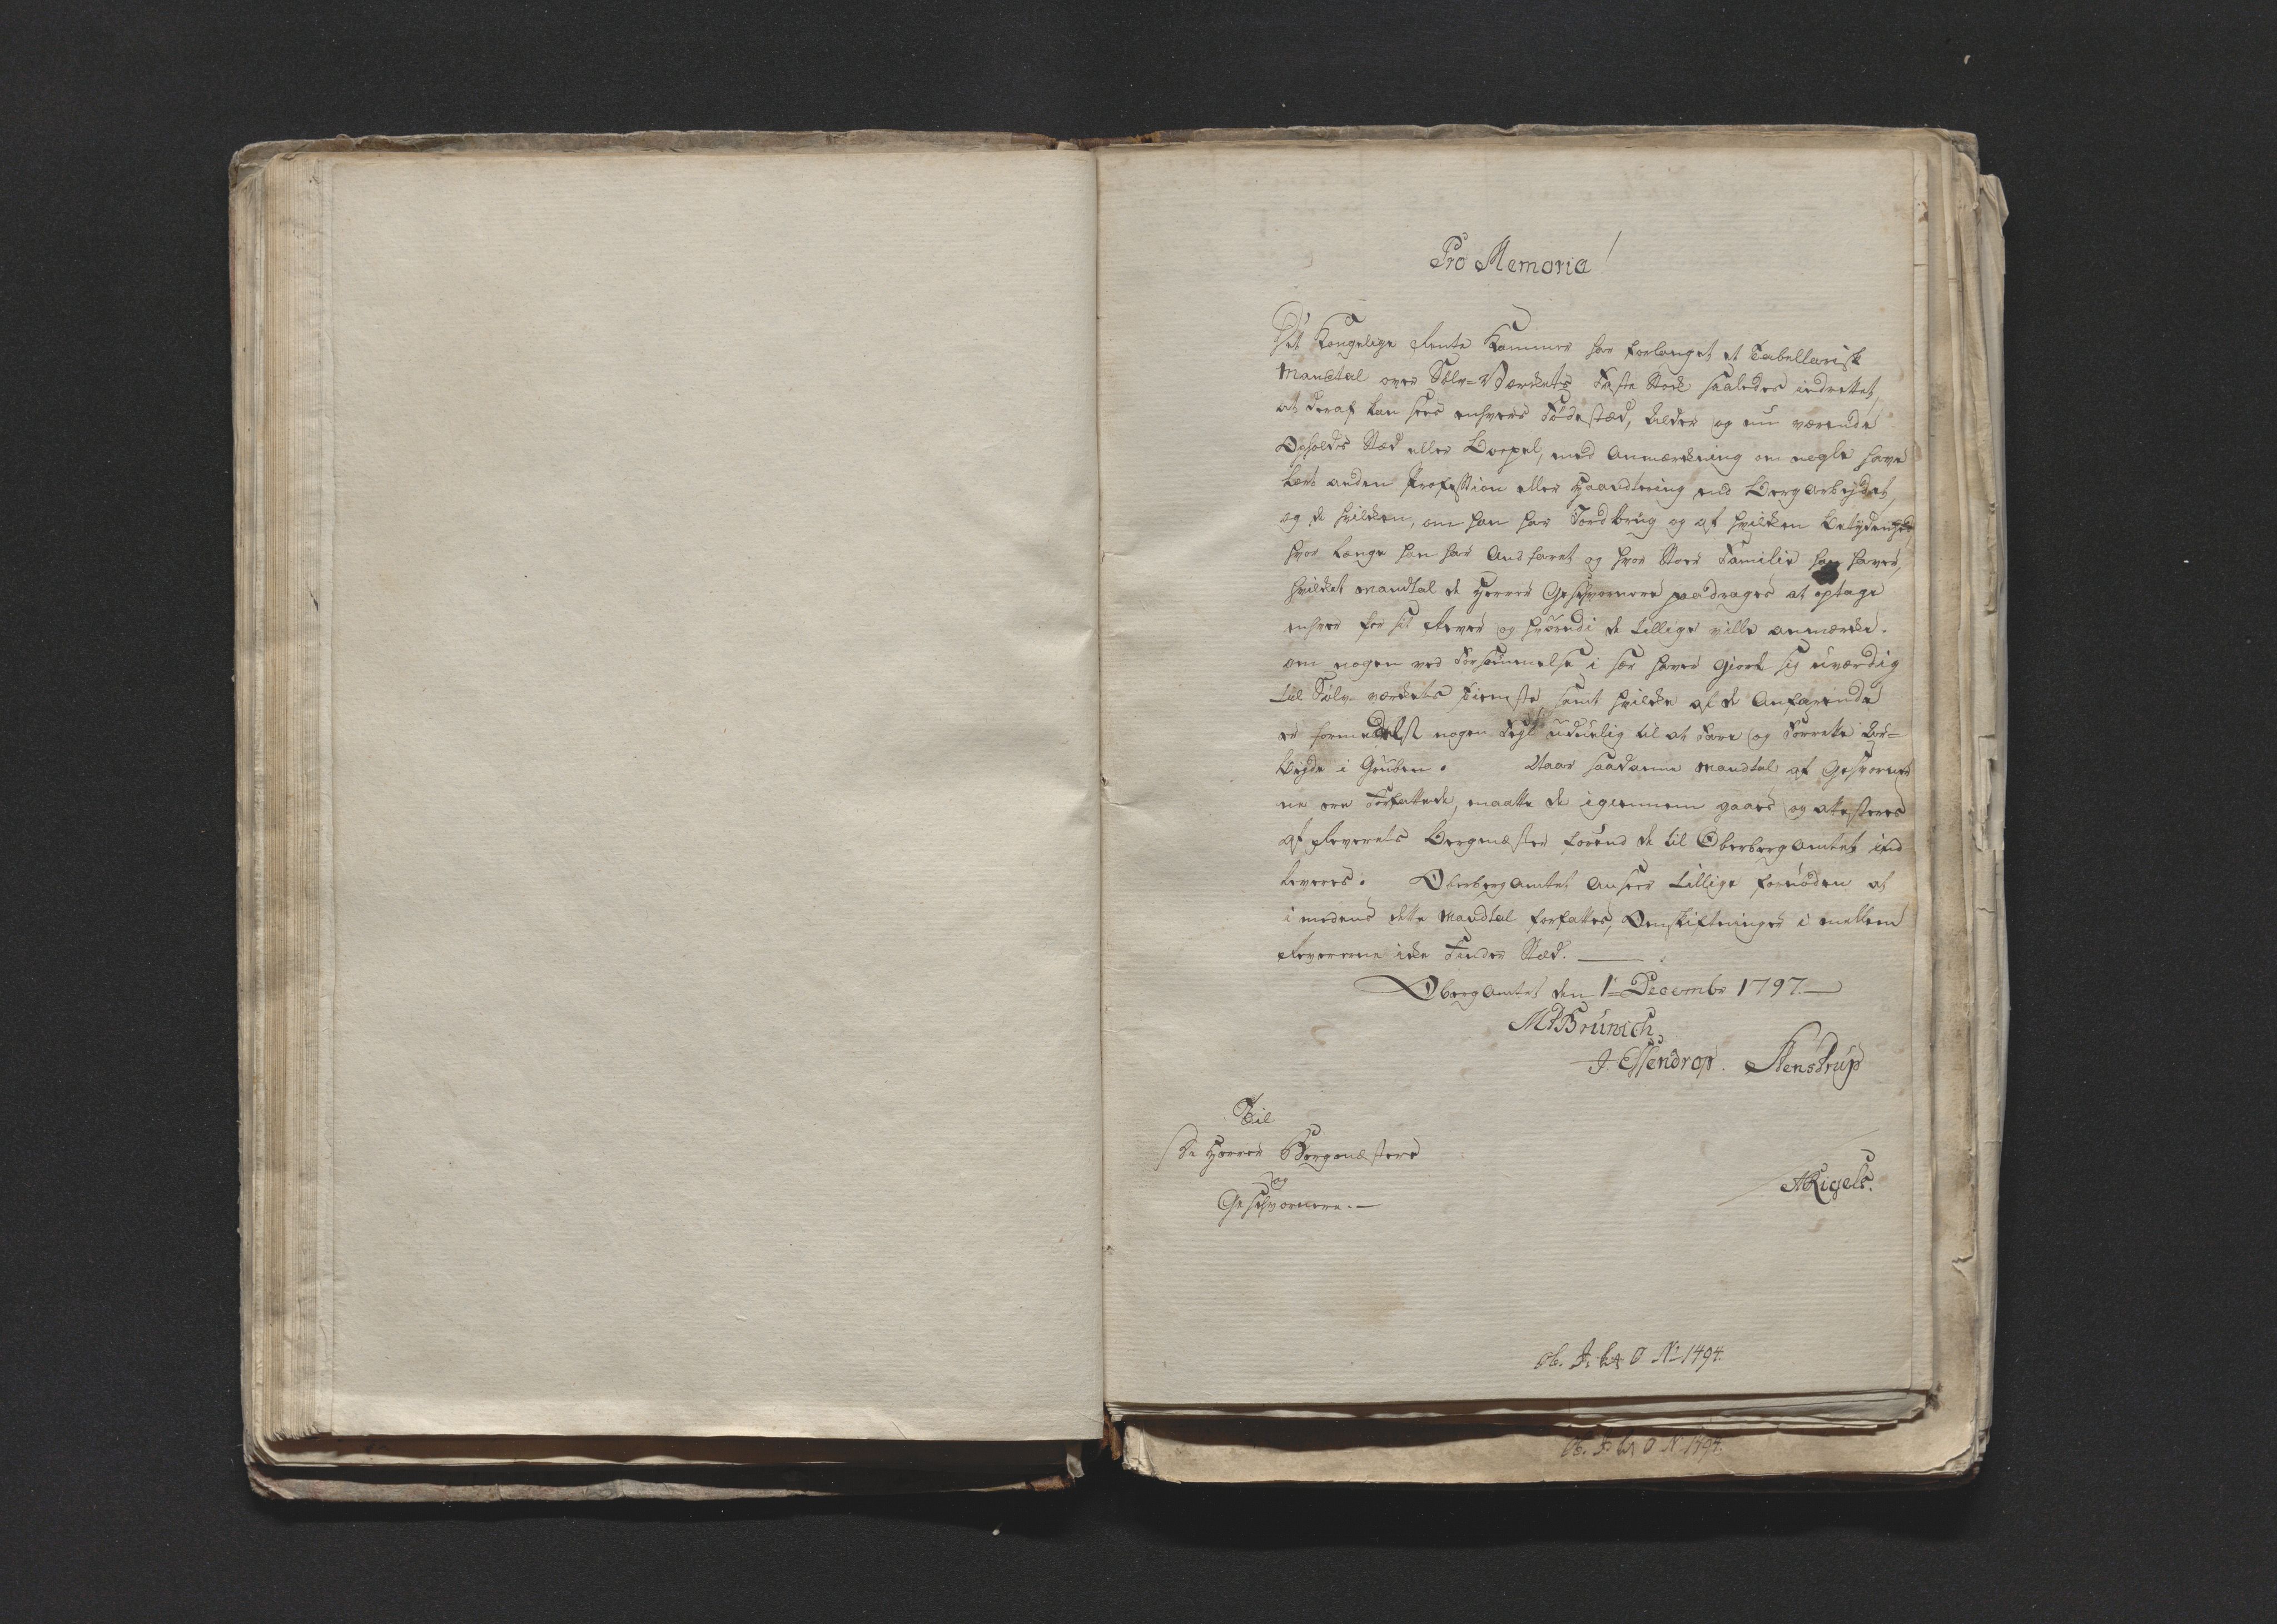 Pro Memoria!
Det Kongelige Rente Kammer har forlanget et Tabellarisk
Mandtal over Sølv-Værkets Faste Stok saaledes indrettet,
at deraf kan sees enhvers Fødestæd, Alder og nu værende
Opholds Stæd eller Boepæl, med Anmærkning om nogle have
lært anden Profession eller Haandtering end Bergarbeydet,
og da hvilken, om han har Jordbrug og af hvilken Betydenhed,
hvor længe han har Andfaret og hvor Stor Familie han haver,
hvilket Mandtal de Herrer Geschwornere paadrages at optage
enhver for sit Rever og hvorudi de tillige ville anmærke.
om nogen ved Forsømmelse i sær haver giort sig uværdig
til Sølv-værkets Tieneste, samt hvilke af de Anfarende
er formedelst nogen Feyl uduelig til at Fare og Forrette Ar-
beyde i Gruben. Naar saadanne Mandtal af Geschworner
ne ere Forfattede, maatte de igiennem gaaes og attesteres
af Reverets Bergmester forend de til Oberbergamtet ind
leveres. Oberbergamtet ansees tillige fornøden at
i medens dette Mandtal forfattes, Omskiftninger i mellem
Revererne ikke Finder Stæd.
Obergamtet den 1te Decembr 1797.
MTBrünich
J. Essendrop. Stenstrup
Til
De Herrer Bergmestere
og
Geschwornere.
ARigels.
No 1494.